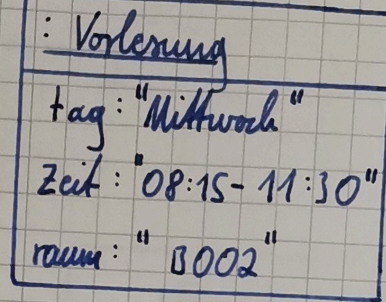 : Vorlesung
tag : "Mittwoch"
Zeit : "08:15- 11:30"
raum : " B002"